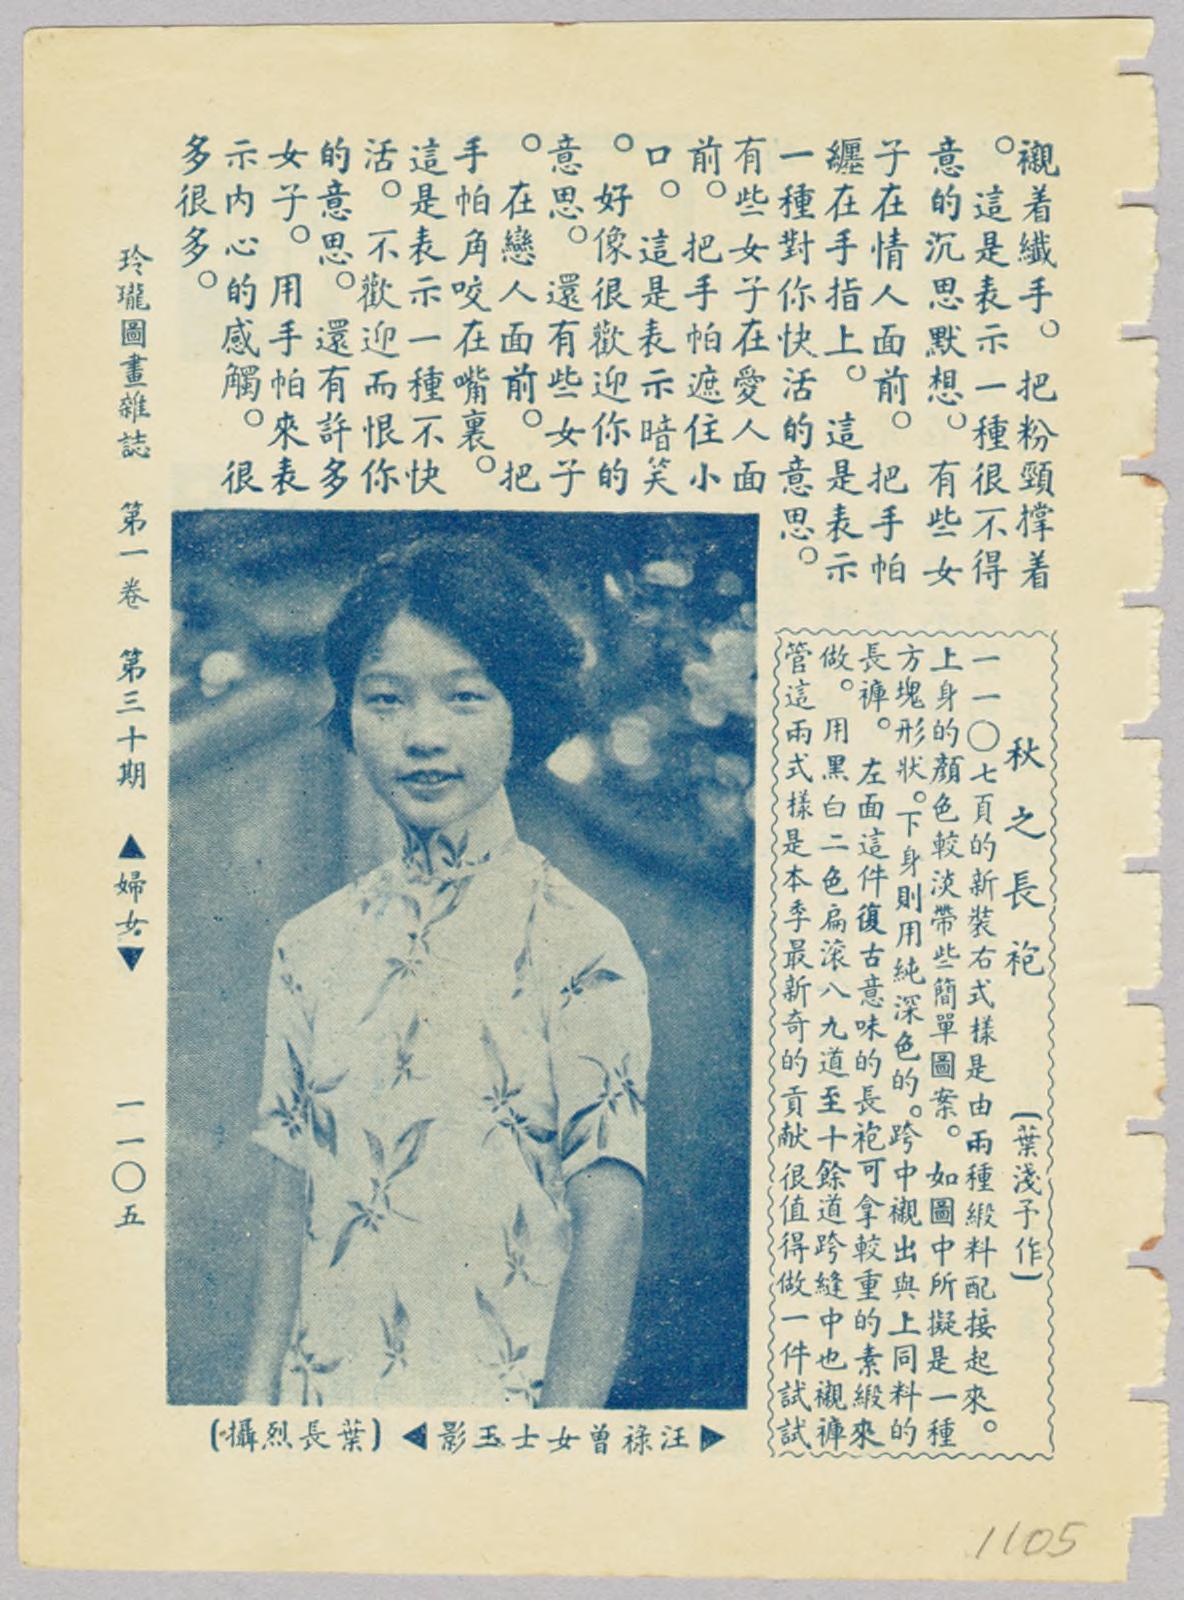 襯着纖手。把粉頸撑着
。這是表示一種很不得
意的沉思默想。有些女
子在情人面前。把手帕
纏在手指上。這是表示
一種對你快活的意思。
有些女子在愛人面
前。把手帕遮住小
口。這是表示暗笑
。好像很歡迎你的
意思。還有些女子
。在戀人面前。把
手帕角咬在嘴裏。
這是表示一種不快
活。不歡迎而恨你
的意思。還有許多
女子。用手帕來表
示內心的感觸。很
多很多。
秋之長袍 (葉淺予作)
一一〇七頁的新裝右式樣是由兩種緞料配接起來。
上身的顏色較淡帶些簡單圖案。如圖中所擬是一種
方塊形狀。下身則用純深色的。跨中襯出與上同料的
長褲。左面這件復古意味的長袍可拿較重的素緞來
做。用黑白二色扁滚八九道至十餘道跨縫中也襯褲
管這兩式樣是本季最新奇的貢献很值得做一件試試
▶汪祿曾女士玉影◀ (葉長烈攝)
玲瓏圖畫雜誌 第一卷 第三十期 ▲婦女▼ 一一〇五
1105